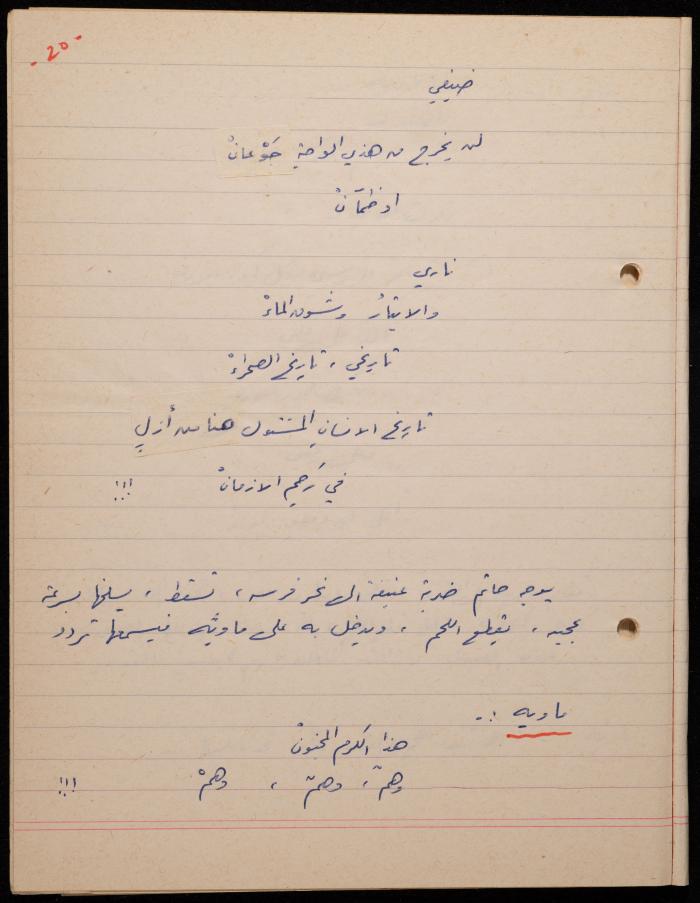 - 20 -
ضيفي
لن يخرج من هذي الواحةِ جَوْعانْ
او ظمآنْ
ناري
والايثارُ وشحون الماءْ
تاريخي، تاريخ الصحراءْ
تاريخ الانسانِ المشنول هنا من أزلٍ
في رَحِمِ الازمانْ !!!
يوجه حاتم ضربة عنيفة الى نحر فرسه، تسقط، يسلخها بسرعة
عجيبه، يقطع اللحم، ويدخل به على ماويّه فيسمعها تردد
ماويه :-
هذا الكرم المجنونْ
وهمٌ، وهمٌ، وهمْ !!!